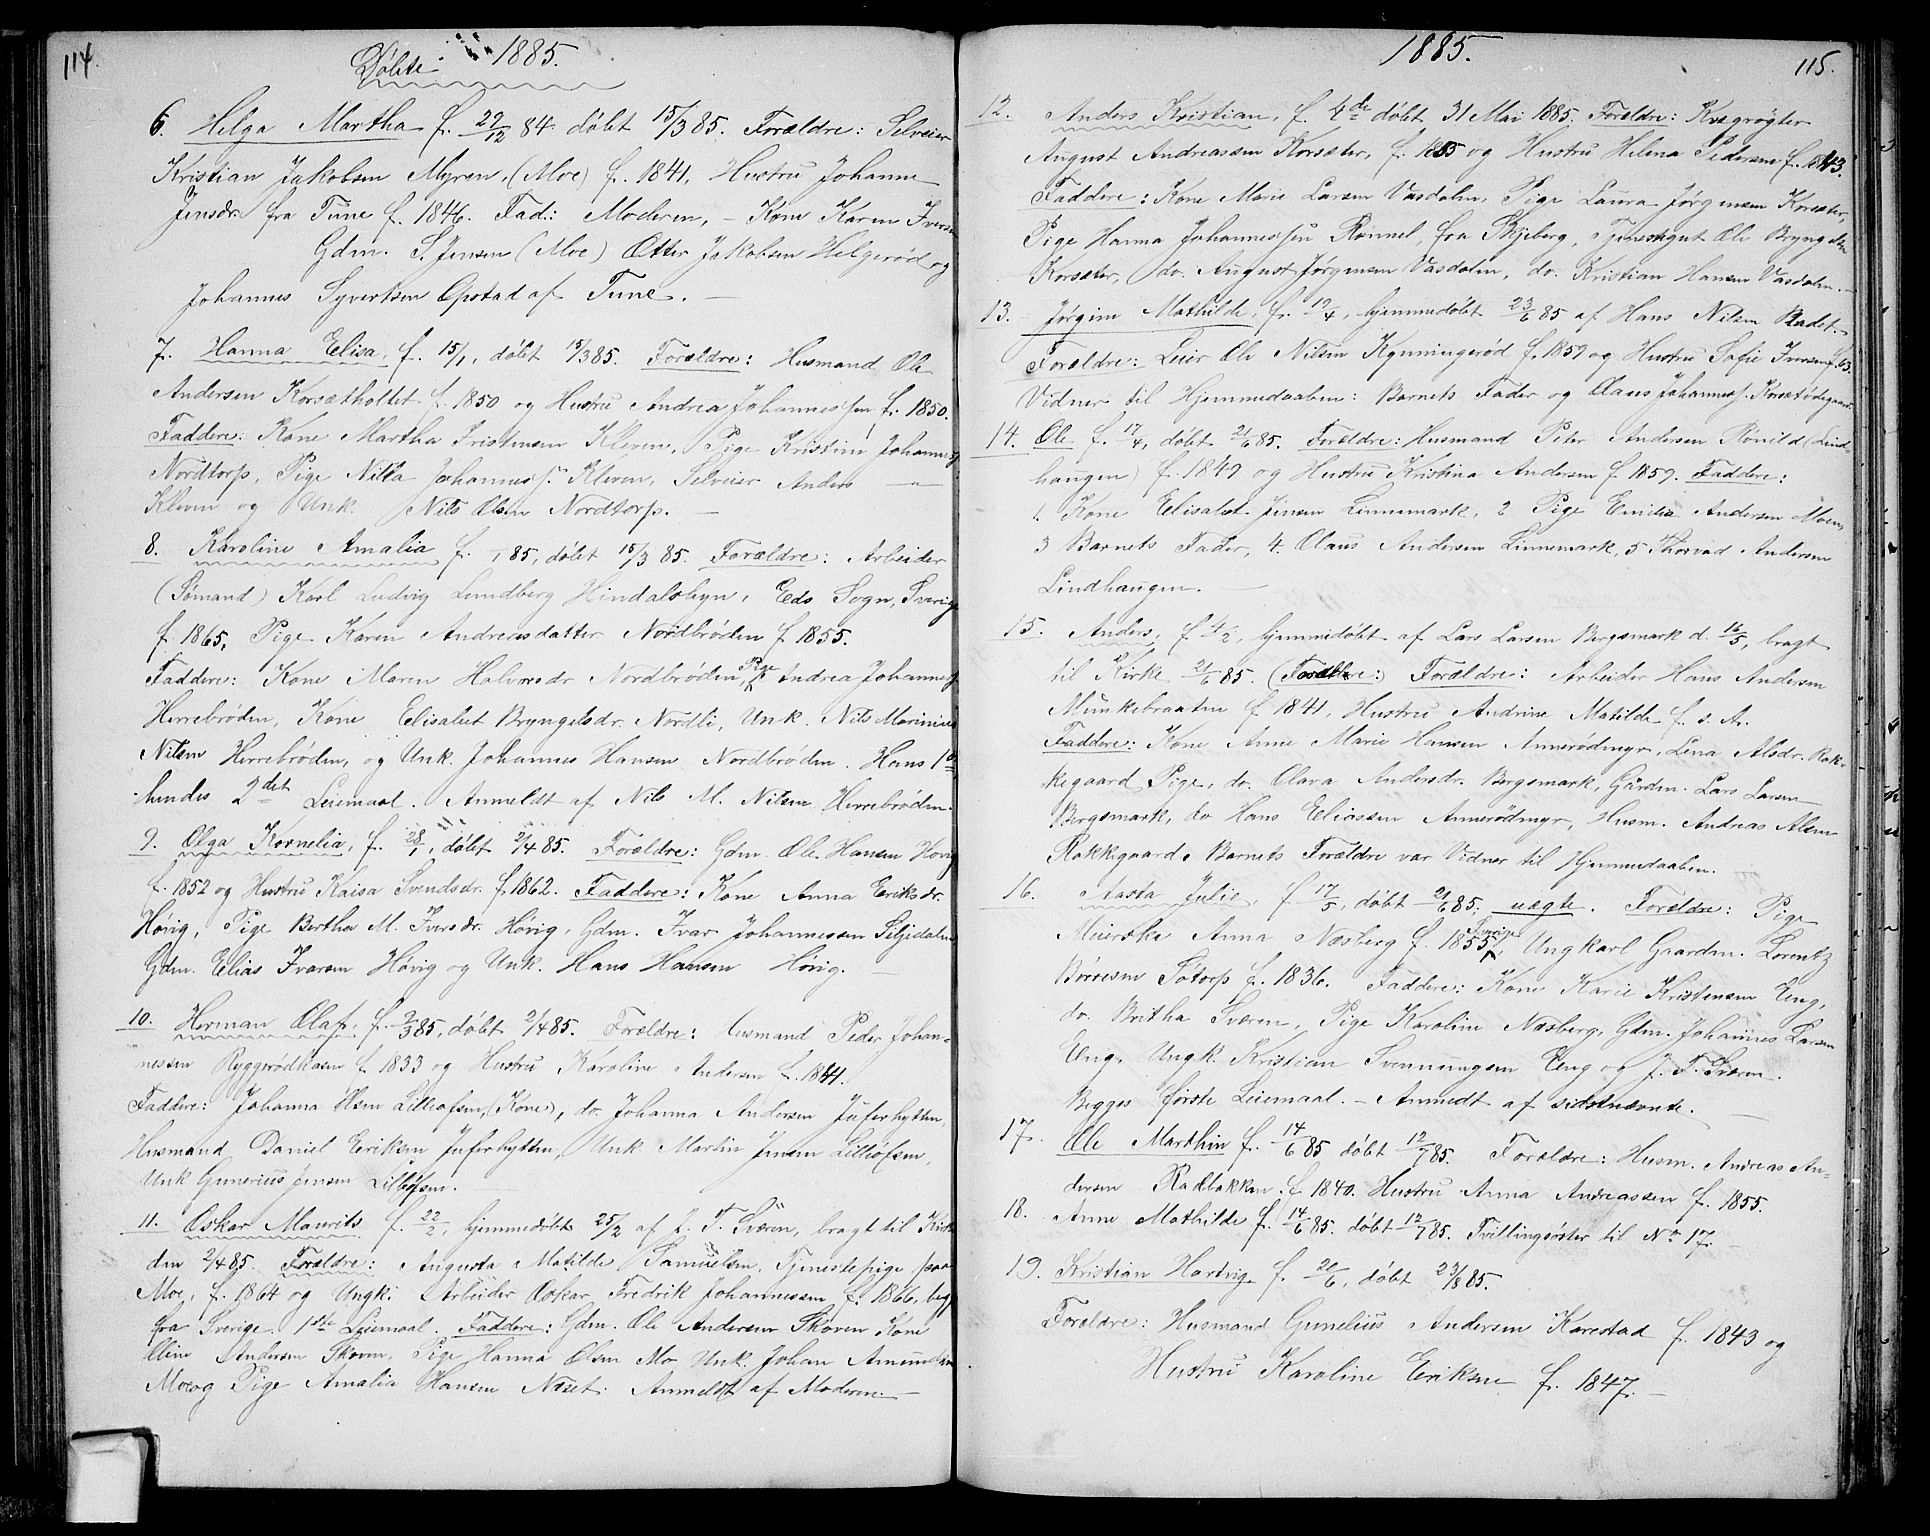 114.
Döbte 1885.
6. Helga Martha f. 29/12 84 döbt 15/3 85. Forældre: Selveier
Kristian Jakobsen Myren, (Moe) f. 1841, Hustru Johanne
Jensdr. fra Tune f. 1846. Fad.: Moderen, – Kone Karen Iversen
Gdm. S. Jensen (Moe) Otter Jakobsen Helgerød og
Johannes Syvertsen Opstad af Tune. –
7. Hanna Elisa, f. 15/1, döbt 15/3 85. Forældre: Husmand Ole
Andersen Korsætholtet f. 1850 og Hustru Andrea Johannessen f. 1850.
Faddere: Kone Martha Kristensen Kleven, Pige Kristine Johannes
Nordtorp, Pige Nilla Johannes Kleven, Selveier Anders –
Kleven og Unk. Nils Olsen Nordtorp. –
8. Karoline Amalia f. 85, döbt 15/3 85. Forældre: Arbeider
(Sömand) Karl Ludvig Lundberg Hindalsbyn, Eds Sogn, Sverige
f. 1865, Pige Karen Andreasdatter Nordbröden f. 1855.
Faddere: Kone Maren Halvorsdr Nordbröden, Pige Andrea Johannes
Herrebröden, Kone Elisabet Bryngelsdr. Nordli, Unk. Nils Marinius
Nilsen Herrebröden, og Unk. Johannes Hansen Nordbröden. Hans 1ste
hendes 2det Leiemaal. Anmeldt af Nils M. Nilsen Herrebröden.
9. Olga Kornelia, f. 28/1, döbt 2/4 85. Forældre: Gdm. Ole Hansen Hovig
f. 1852 og Hustru Kaisa Svendsdr. f. 1862. Faddere: Kone Anna Eriksdr.
Hövig, Pige Bertha M. Iversdr. Hövig, Gdm. Ivar Johannessen Siljedalen
Gdm. Elias Ivarsen Hövig og Unk. Hans Hansen Hövig. –
10. Herman Olaf, f. 2/3 85, döbt 2/4 85. Forældre: Husmand Peder Johan-
nessen Ryggerödkasen f. 1833 og Hustru Karoline Andersen f. 1841.
Faddere: Johanna Olsen Lilleofsen, (Kone), do. Johanna Andersen Juferhytten,
Husmand Daniel Eriksen Juferhytten, Unk Martin Jensen Lilleofsen,
Unk Gunerius Jensen Lilleöfsen.
11. Oskar Maurits f. 22/2, hjemmedöbt 25/2 af J. T. Sväen, bragt til Kirke
den 2/4 85. Forældre: Augusta Matilde Samuelsen, Tjenestepige paa
Moe, f. 1864 og Ungk. Arbeider Oskar Fredrik Johannessen f. 1866, begge
fra Sverige. 1ste Leiemaal. Faddere: Gdm. Ole Andersen Skoven Kone
Oline Andersen Skoven, Pige Hanna Olsen Mo, Unk. Johan Amundsen
Moe og Pige Amalia Hansen Næset. Anmeldt af Moderen. –
1885.
115.
12. Anders Kristian, f. 4de döbt 31 Mai 1885. Forældre: Kvægrögter
August Andreassen Korsæter, f. 1855 og Hustru Helena Pedersen f. 1843.
Faddere: Kone Marie Larsen Vasdalen, Pige Laura Jörgensen Korsæter,
Pige Hanna Johannessen Rönnel, fra Skjeberg, Tjenestegut Ole Bryngelsen
Korsæter, do. August Jörgensen Vasdalen, do. Kristian Hansen Vasdalen. –
13. Jörgine Mathilde, f. 19/4, hjemmedöbt 23/6 85 af Hans Nilsen Rødet.
Forældre: Leier Ole Nilsen Kynningeröd f. 1859 og Hustru Sofie Iversen f. 63.
Vidner til Hjemmedaaben: Barnets Fader og Olaus Johannes. Korsetödegaard.
14. Ole f. 17/4, döbt 21/6 85. Forældre: Husmand Peter Andersen Rönild (Lind-
haugen) f. 1849 og Hustru Kristina Andersen f. 1859. Faddere:
1. Kone Elisabet Jensen Linnemark, 2 Pige Emilia Andersen Moen,
3 Barnets Fader, 4. Olaus Andersen Linnemark, 5 Thorvad Andersen
Lindhaugen. –
15. Anders, f. 4/2, hjemmedöbt af Lars Larsen Bergsmark d. 16/5, bragt
til Kirke 21/6 85. (Forældre:) Forældre: Arbeider Hans Andersen
Munkebraaten f. 1841, Hustru Andrine Matilde f. s. Ar.
Faddere: Kone Anne Marie Hansen Anneródmyr, Lena Alsdr. Rak-
kegaard Pige, do. Olava Andersdr. Bergsmark, Gårdm. Lars Larsen
Bergsmark, do Hans Eliassen Annerödmyr, Husm. Andreas Alsen
Rakkegaard. Barnets Forældre var Vidner til Hjemmedaaben. –
16. Aasta Julie f. 17/5, döbt 21/6 85; uægte. Forældre: Pige
Meierske Anna Næsberg f. 1855 Sverige, Ungkarl Gaardm. Lorentz
Börresen Sotorp f. 1836. Faddere: Kone Karie Kristensen Eng,
do. Britha Sväen, Pige Karoline Næsberg, Gdm. Johannes Larsen
Eng, Ungk. Kristian Svenningsen Eng og J. T. Sväen.
Begges förste Leiemaal. – Anmedt af sidstnævnte. –
17. Ole Marthin f. 14/6 85 döbt 12/7 85. Forældre: Husm. Andreas An-
dersen Raklakken f. 1840. Hustru Anna Andreassen f. 1855.
18. Anne Mathilde f. 14/6 85. döbt 12/7 85. Tvillingsöster til No 17. –
19. Kristian Hartvig f. 20/6, döbt 23/8 85.
Forældre: Husmand Gunelius Andersen Karestad f. 1843 og
Hustru Karoline Eriksen f. 1847. –